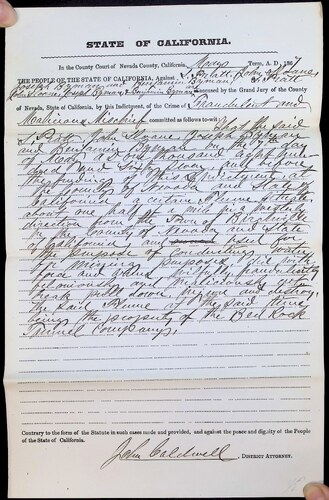 STATE OF CALIFORNIA.
In the County Court of Nevada County, California, Term, A. D., 1867
THE PEOPLE OF THE STATE OF CALIFORNIA, Against
Joseph Byman and Benjamin Byman
accused by the Grand Jury of the County of
Nevada, State of California, by this Indictment, of the Crime of Fraudulent and
Malicious Mischief committed as follows to wit: That the said
John Sloane Joseph Byman
and Benjamin Byman on the day
of May A D one thousand eight hun-
dred and Sixty Seven and before
the finding of this Indictment at
the County of Nevada and State of
California, a certain flume situate
about one half a mile in a westerly
direction from the Town of
in the County of Nevada and State
of California, and used for
the purpose of conducting water
for mining purposes did with
force and arms wilfully fraudulently
feloniously and maliciously cut
break pull down injure and destroy,
the said flume of the said flume
being the property of the Bed Rock
Tunnel Company,
Contrary to the form of the Statute in such cases made and provided, and against the peace and dignity of the People
of the State of California.
John Caldwell, DISTRICT ATTORNEY.